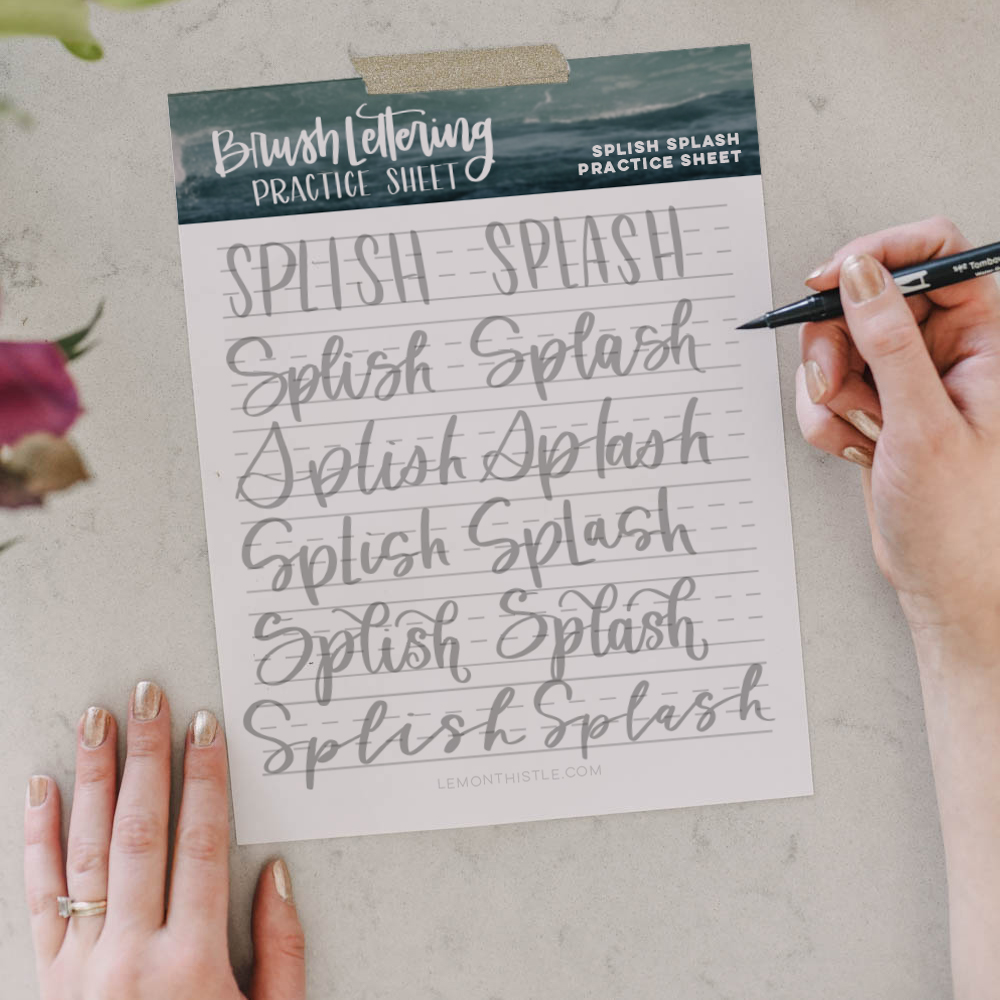 Brush Lettering
PRACTICE SHEET
SPLISH SPLASH
PRACTICE SHEET
SPLISH SPLASH
Splish Splash
Splish Splash
Splish Splash
Splish Splash
Splish Splash
LEMONTHISTLE.COM
Tombow